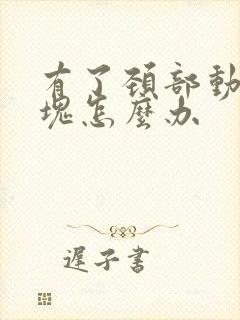 有了頚部動
塊怎麼办
遲子書